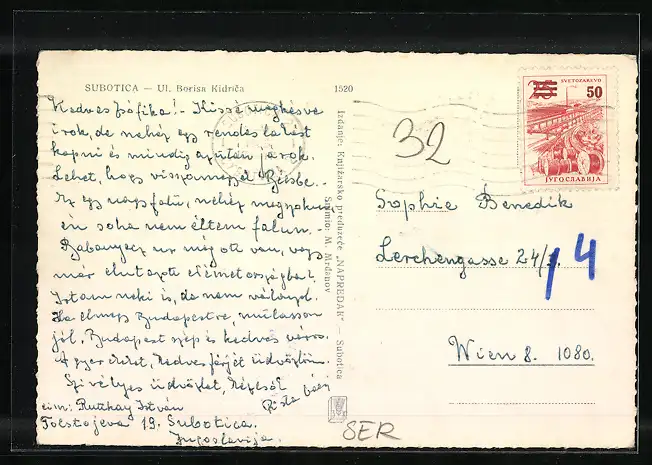 SUBOTICA — Ul. Borisa Kidriča
1520
Kedves Zsófika! - Kissé megkésve
írok, de nehéz egy rendes lapot
kapni és mindig azután járok.
Lehet, hogy visszamegyek Bécsbe. -
Ez egy nagy falu, nehéz megszokni
én soha nem éltem falun. -
úr még ott van, vagy
már elutazott Németországba?
Írtam neki is, de nem válaszol.
Ha elmegy Budapestre, mulasson
jól, Budapest szép és kedves város.
A gyereket, kedves férjét üdvözlöm.
Szívélyes üdvözlet, kézcsók
Pista bácsi
cím: Ruttkay István
Tolstojeva 19. Subotica.
Jugoslavija.
Izdanje: Knjižarsko preduzeće „NAPREDAK" — Subotica
Snimio: M. Mrđanov
32
SVETOZAREVO
25
50
JUGOSLAVIJA
Sophie Benedik
Lerchengasse 24/
14
Wien 8. 1080.
SER